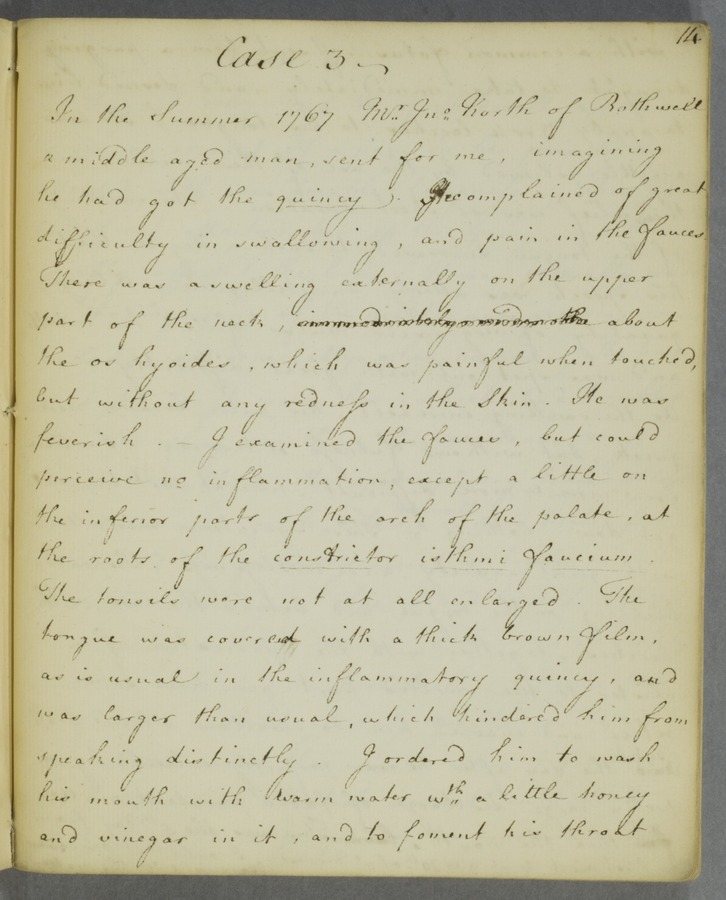 14
Case 3
In the Summer 1767 Mr. Jno. North of Rothwell
a middle aged man, sent for me, imagining
he had got the quincy. He complained of great
difficulty in swallowing, and pain in the fauces.
There was a swelling externally on the upper
part of the neck, immediately under the about
the os hyoides, which was painful when touched,
but without any redness in the Skin. He was
feverish. — I examined the fauces, but could
perceive no inflammation, except a little on
the inferior parts of the arch of the palate, at
the roots of the constrictor isthmi faucium.
The tonsils were not at all enlarged. The
tongue was covered with a thick brown film,
as is usual in the inflammatory quincy, and
was larger than usual, which hindered him from
speaking distinctly. I ordered him to wash
his mouth with warm water wth a little honey
and vinegar in it, and to foment his throat